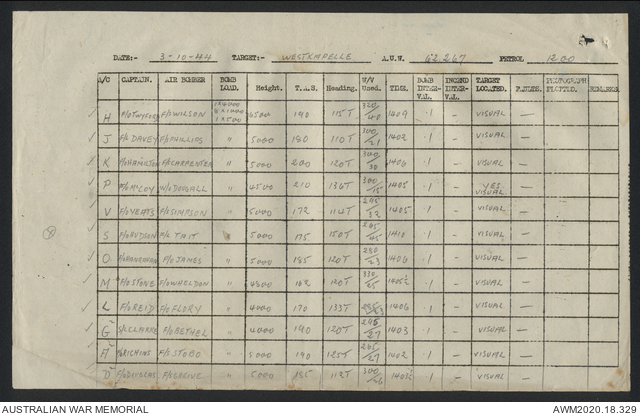 DATE:- 3-10-44 TARGET:- WESTKAPELLE A.U.W. 62267 PETROL 1200
A/C CAPTAIN. AIR BOMBER BOMB LOAD. Height. T.A.S. Heading. W/V Used. TIME. BOMB INTER-VAL. INCEND INTER-VAL. TARGET LOCATED. RESULTS. PHOTOGRAPH PLOTTED. REMARKS.
H F/O WILSON 1x4000 190 115T 320/40 1409 .1 - VISUAL -
J F/O DAVEY F/O PHILLIPS " 5000 180 110T 300/21 1402 .1 - VISUAL -
K F/O HAMILTON F/O CARPENTER " 5000 200 120T 300/30 1406 .1 - VISUAL -
P W/O DOUGALL " 4500 210 136T 300/15 1405 .1 - YES VISUAL -
V F/O YEATS F/O SIMPSON " 5000 172 114T 1405 .1 - VISUAL -
S F/O HUDSON F/O TAIT " 5000 175 150T 265/45 1410 .1 - VISUAL -
O F/O JAMES " 5000 185 120T 1406 .1 - VISUAL -
M F/O STONE F/O WHELDON " 4800 162 120T 330/25 .1 - VISUAL -
L F/O REID F/O FLORY " 4000 170 133T 1406 .1 - VISUAL -
G S/L CLARKE F/O BETHEL " 4000 190 120T 295/27 1403 .1 - VISUAL -
A RICHINS F/O STOBO " 5000 190 125T 265/27 1402 .1 - VISUAL -
D " 5000 185 112T .1 - VISUAL -
AUSTRALIAN WAR MEMORIAL AWM2020.18.329